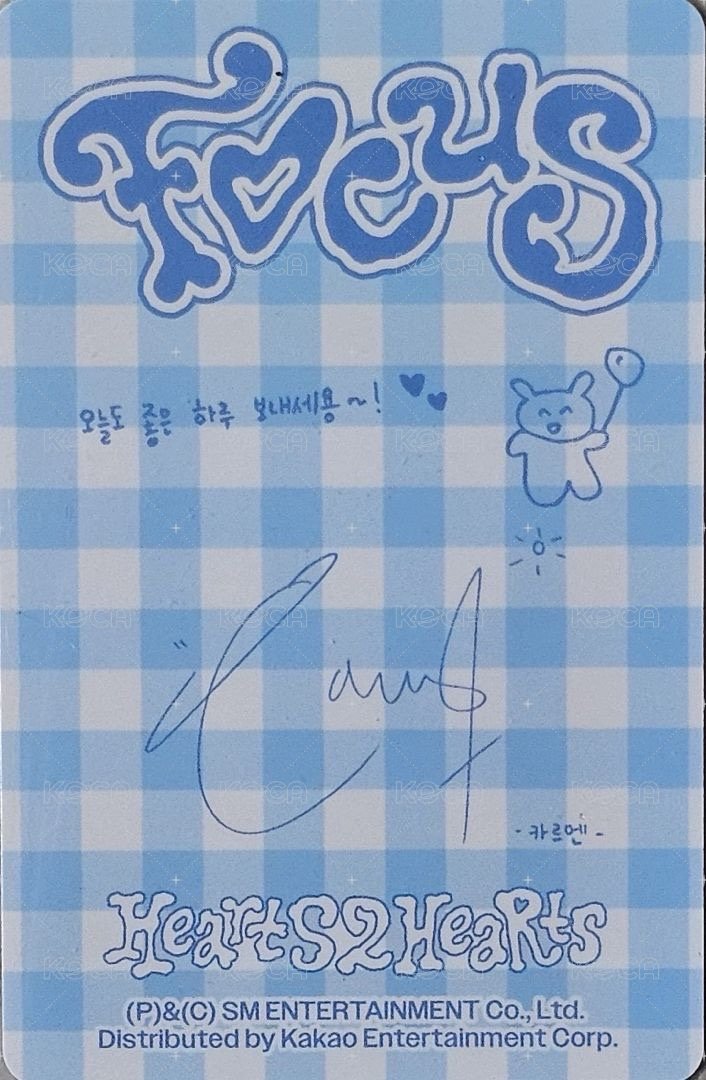 Focus
오늘도 좋은 하루 보내세용~! ♥♥
-카르멘-
Hearts2Hearts
(P)&(C) SM ENTERTAINMENT Co., Ltd.
Distributed by Kakao Entertainment Corp.